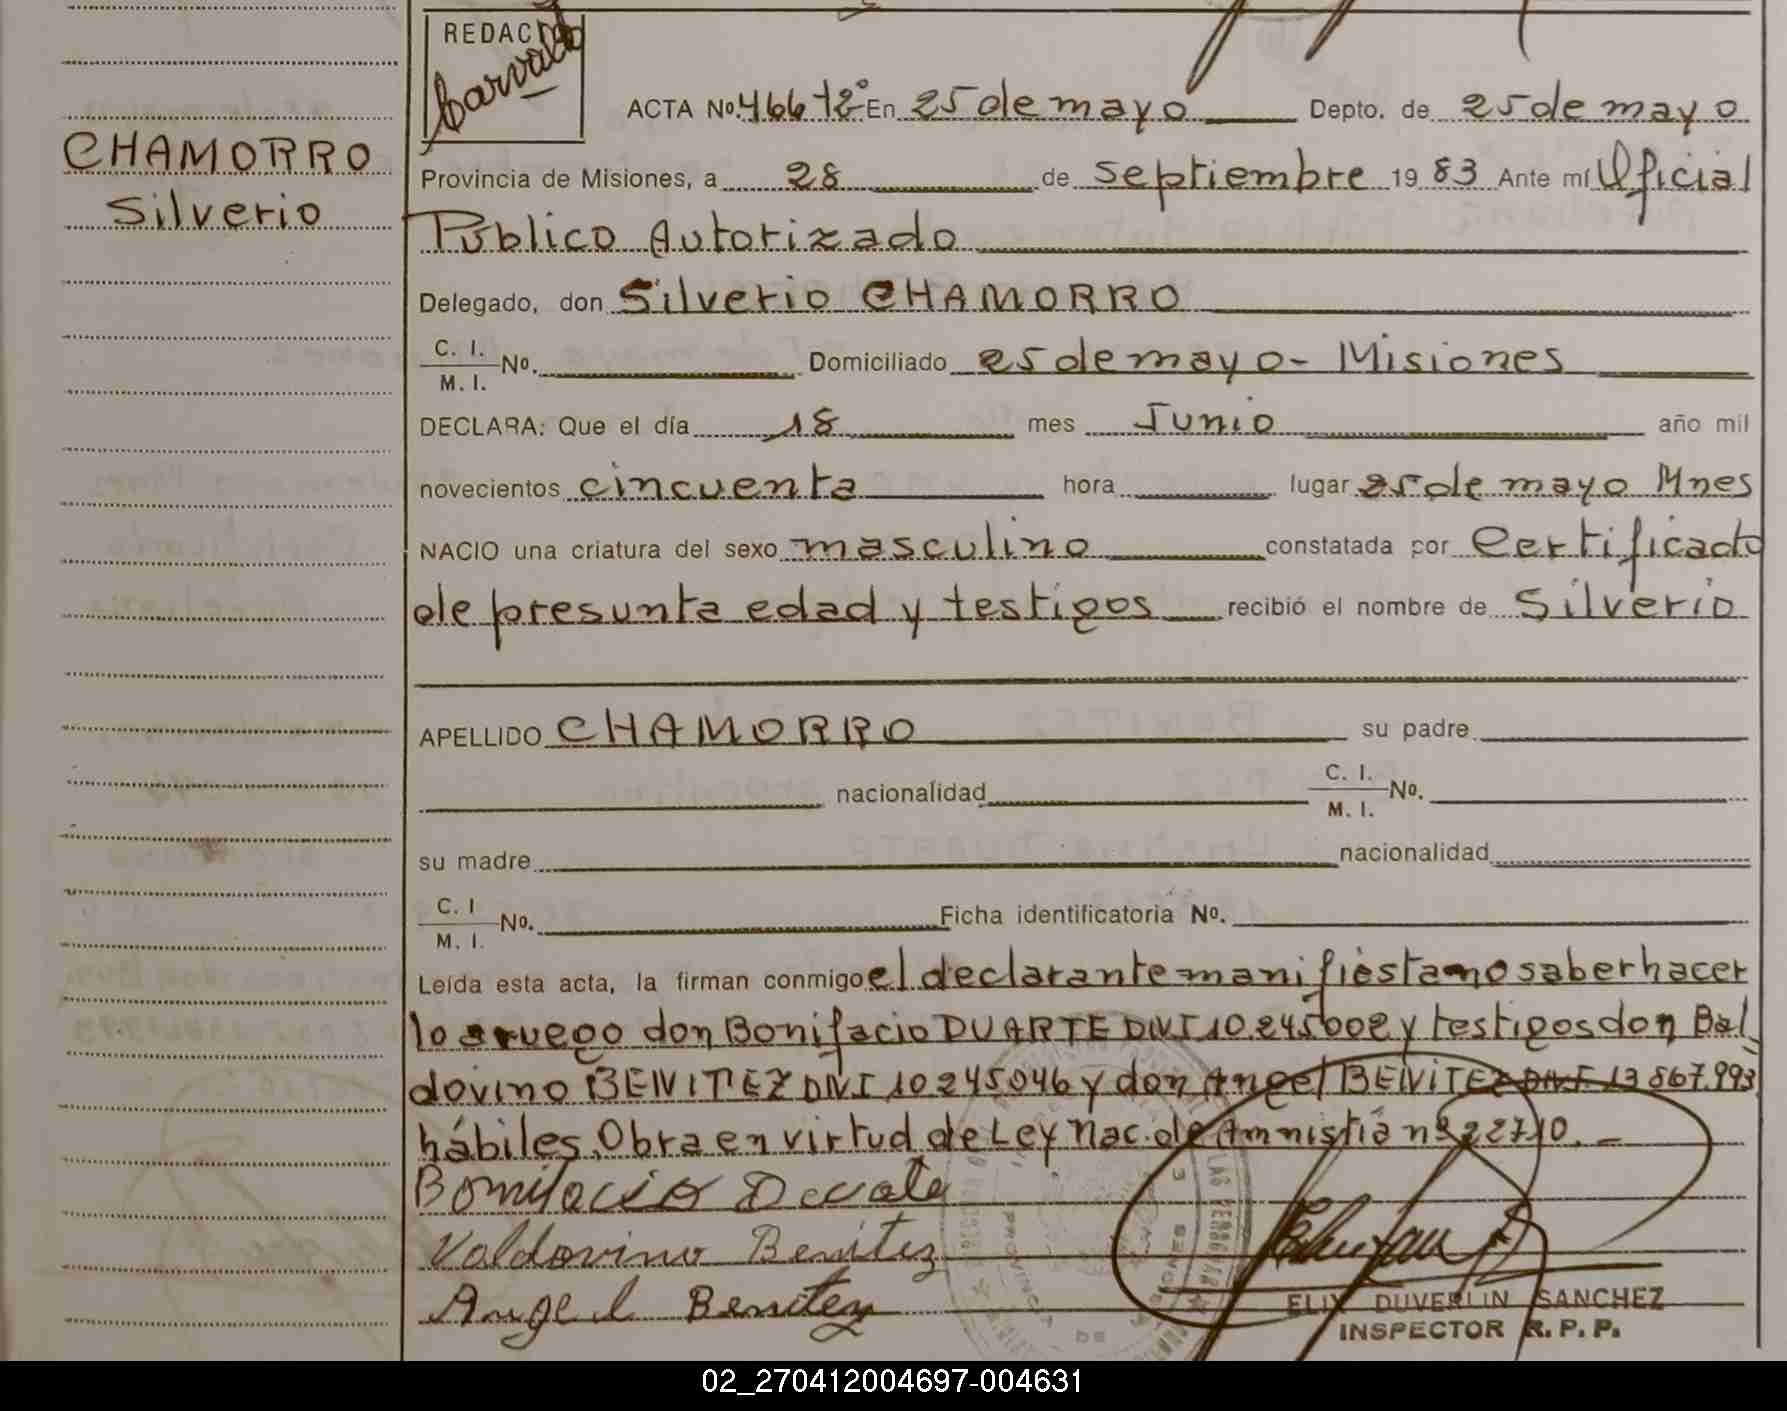 REDACTO
CHAMORRO
Silverio
ACTA No. 466 t2° En 25 de mayo Depto. de 25 de mayo
Provincia de Misiones, a 28 de septiembre 19 83 Ante mí Oficial
Público Autorizado
Delegado, don Silverio CHAMORRO
C. I. / M. I. No. Domiciliado 25 de mayo - Misiones
DECLARA: Que el día 18 mes Junio año mil
novecientos cincuenta hora lugar 25 de mayo Mnes
NACIO una criatura del sexo masculino constatada por Certificado
de presunta edad y testigos recibió el nombre de Silverio
APELLIDO CHAMORRO su padre
nacionalidad C. I. / M. I. No.
su madre nacionalidad
C. I / M. I. No. Ficha identificatoria No.
Leída esta acta, la firman conmigo el declarante manifiesta no saber hacer
lo a ruego don Bonifacio DUARTE DNI 10.245002 y testigos don Bal
dovino BENITEZ DNI 10245046 y don Angel BENITEZ DNI 13867.993
hábiles. Obra en virtud de Ley Nac. de Amnistiá nº 22710. -
Valdovino Benitez
Angel Benitez
ELIX DUVERLIN SANCHEZ
INSPECTOR R. P. P.
02_270412004697-004631